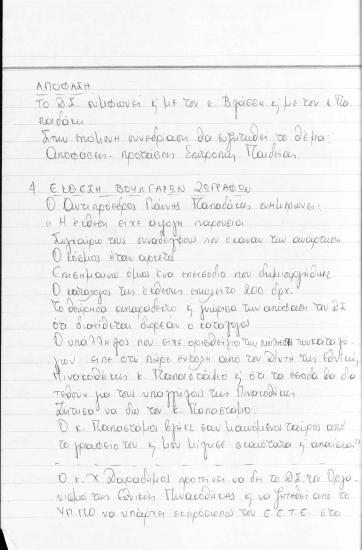 ΑΠΟΦΑΣΗ
Το Δ.Σ. συμφωνεί κ με τον κ. Βλάσση κ με τον κ Πα
παϊδάκη
Στην επόμενη συνεδρίαση θα συζητηθεί το θέμα:
Αποφάσεις - προτάσεις Επιτροπής Παιδείας.
4. ΕΚΘΕΣΗ ΒΟΥΛΓΑΡΩΝ ΖΩΓΡΑΦΩΝ
Ο Αντιπρόεδρος Γιάννης Παπαδάκης ενημερώνει:
"Η έκθεση είχε άψογη παρουσία
Συγχαίρω τους συναδέλφους που έκαναν την ανάρτηση
Ο κόσμος ήταν αρκετός
Επισημαίνω όμως ένα επεισόδιο που δημιουργήθηκε
Ο κατάλογος της έκθεσης επωλείτο 200 δρχ.
Το θεώρησα απαράδεκτο κ γνώρισα την απόφαση του ΔΣ
ότι διατίθεται δωρεάν ο κατάλογος
Ο υπάλληλος που είχε ορισθεί για την πώληση των καταλό
γων είπε ότι πήρε εντολή από τον Δ/ντη της Εθνικής
Πινακοθήκης κ. Παπαστάμο κ ότι τα έσοδα θα δια
τεθούν για τους υπαλλήλους της Πινακοθήκης
Ζήτησα να δω τον κ. Παπαστάμο.
Ο κ. Παπαστάμος βγήκε σαν μαινόμενος ταύρος από
το γραφείο του κ μου μίλησε σκαιότατα κ απαίσια"
Ο κ. Χ Δαραδήμος προτείνει να δει το Δ.Σ. τον Οργα
νισμό της Εθνικής Πινακοθήκης κ να ζητηθεί από το
ΥΠ.ΠΟ να υπάρχει εκπρόσωπος του Ε.Ε.Τ.Ε. στο